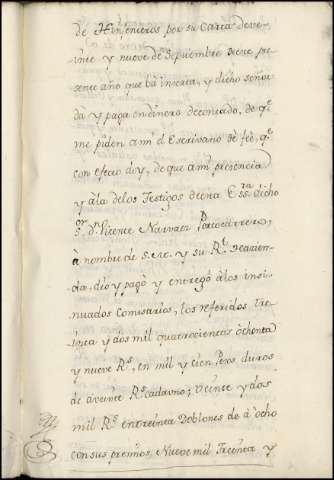 de Yngenieros por su Carta de ve-
inte y nueve de Septiembre de este pre-
sente año que bá inserta, y dicho señor
dá y paga en dinero decontado, de qe
me piden a mi el Escrivano de feé, qe
con efecto doy, de que a mi presencia
y á la delos Testigos de esta Essra. dicho
sor. Dn. Vicente Narvaez Portocarrero,
à nombre de S. M. y su Rl. Hacien-
da, dio y pagò y entregó álos insi-
nuados Comisarios, los referidos Tre-
inta y dos mil quatrocientos ôchenta
y nueve Rs., en mil y cien Pesos duros
de aveinte Rs. cadauno; Veinte y dos
mil Rs. en treinta Doblones de â ôcho
con sus premios, Nueve mil Treinta y